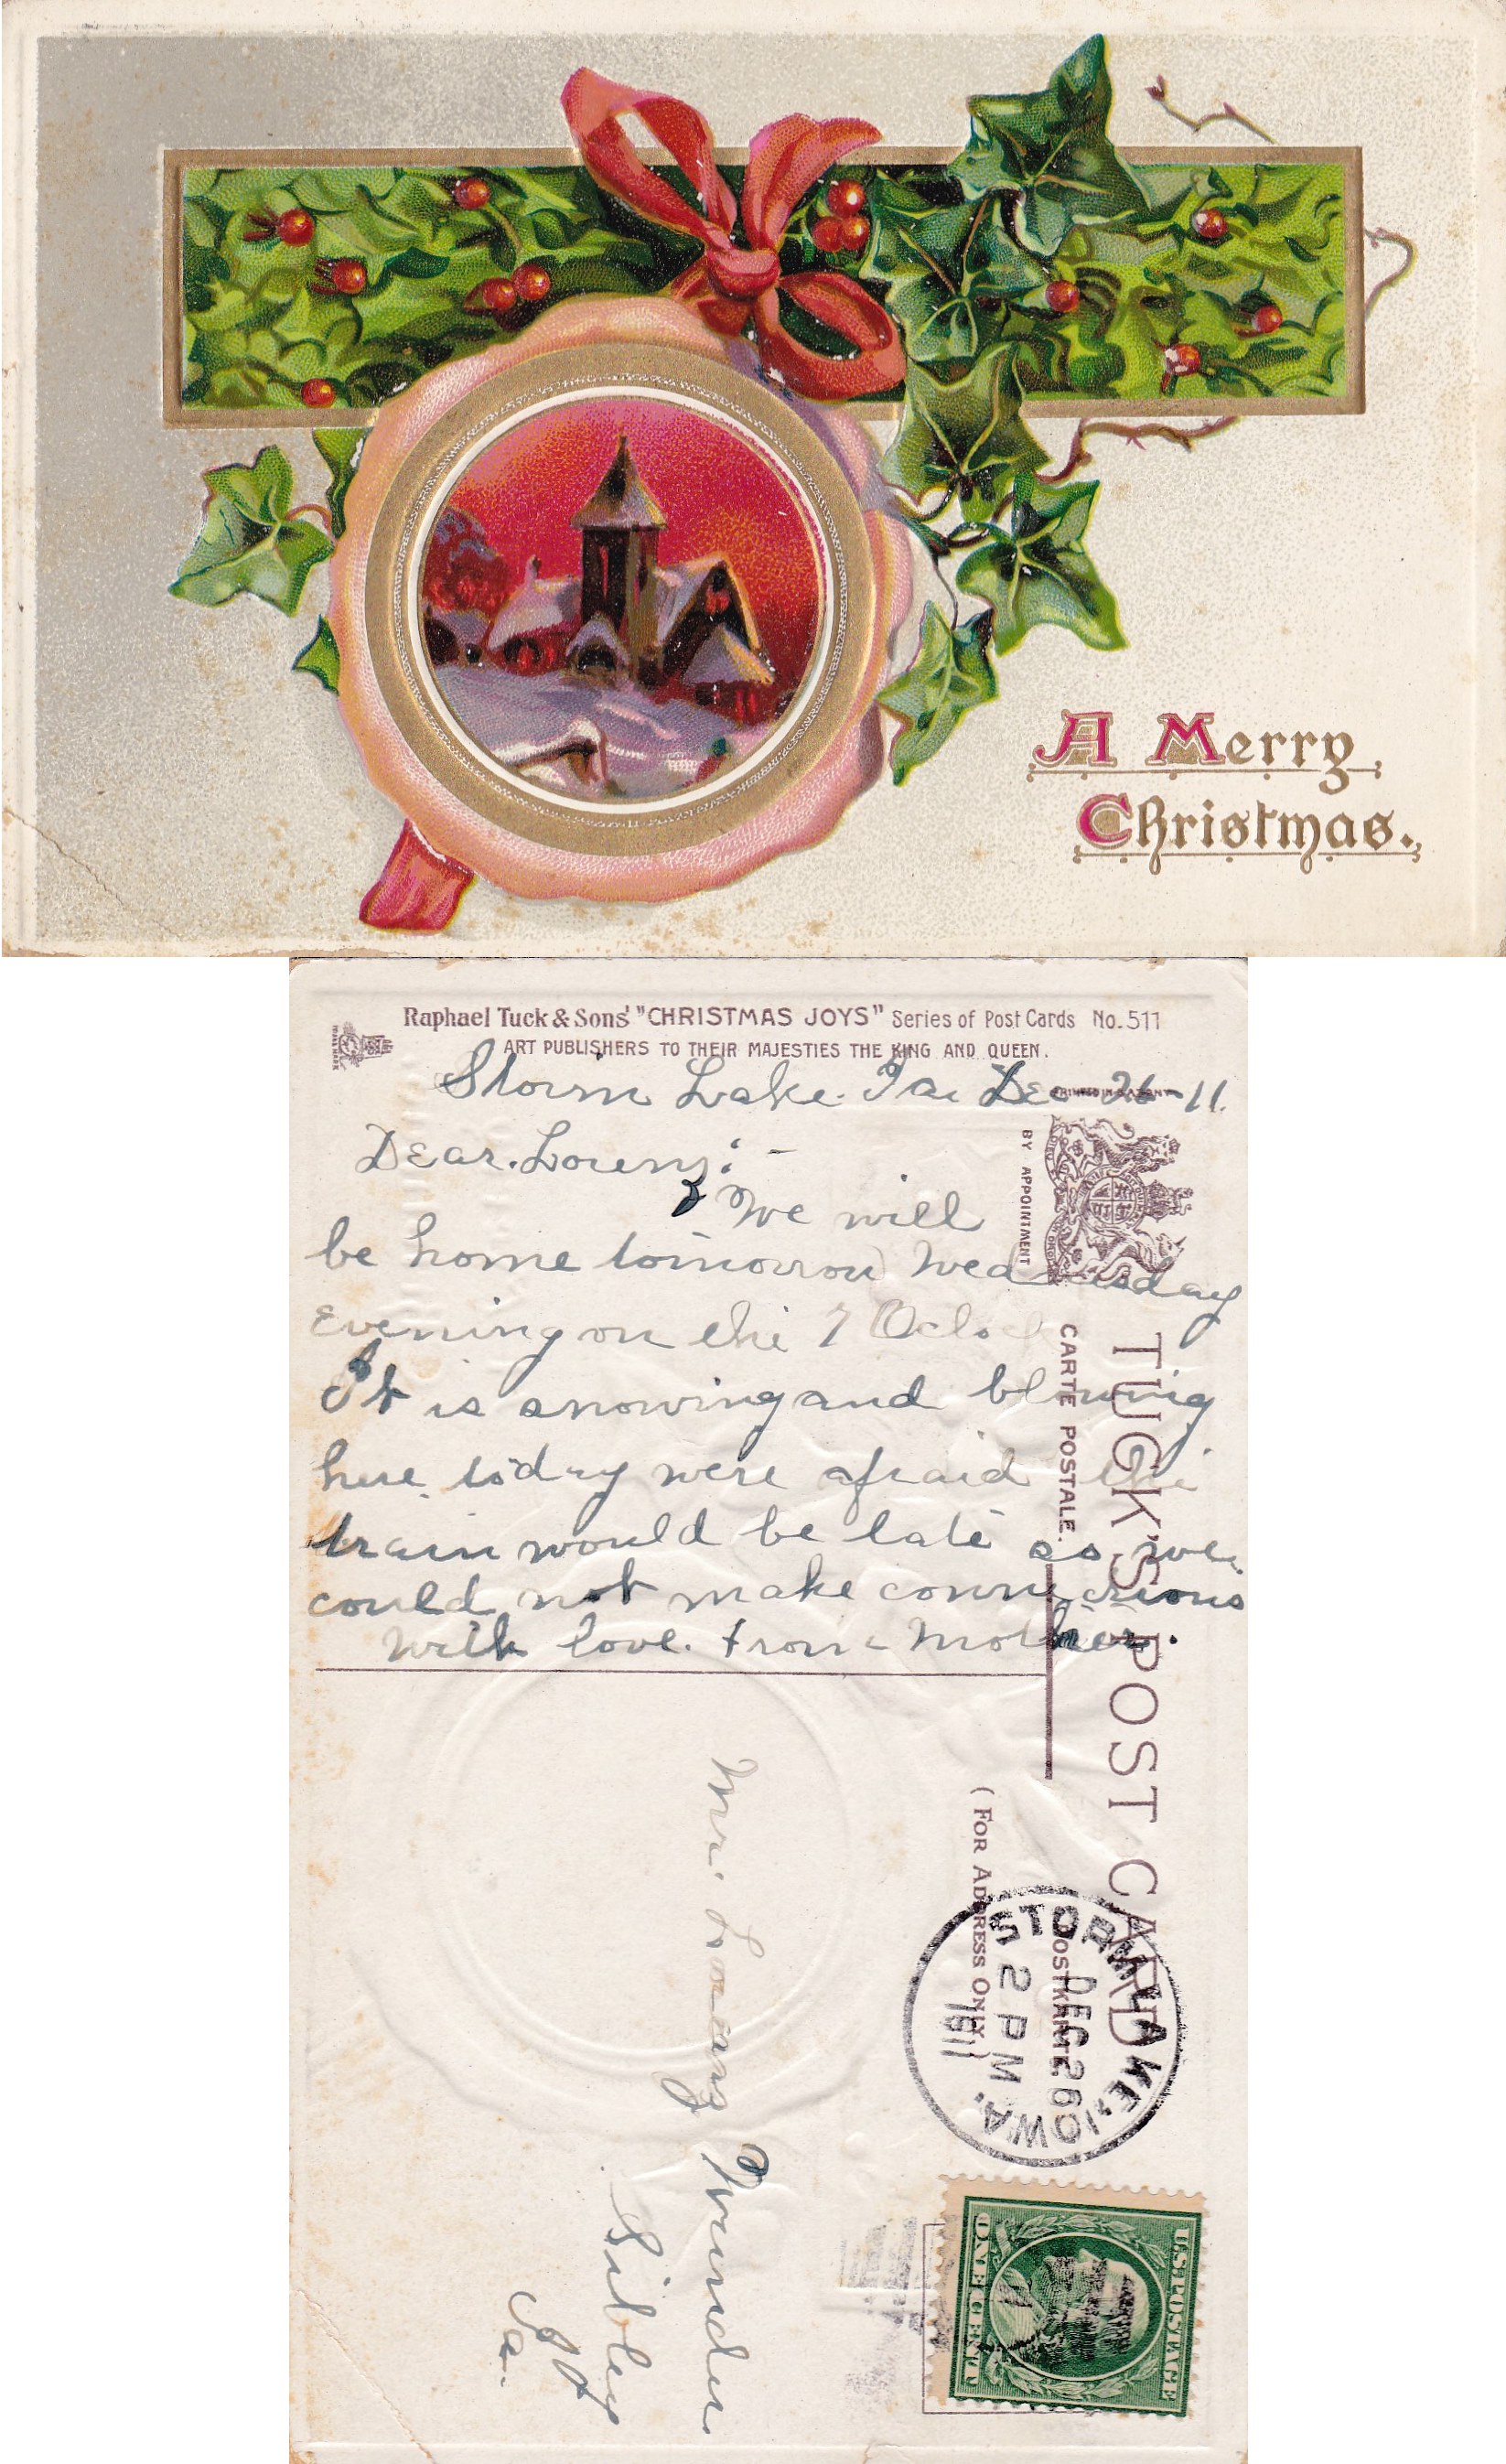 A Merry
Christmas.
Raphael Tuck & Sons' "CHRISTMAS JOYS" Series of Post Cards No. 511
ART PUBLISHERS TO THEIR MAJESTIES THE KING AND QUEEN.
Storm Lake. Ia. Dec 26-11.
Dear. Lorenz:-
We will
be home tomorrow Wednesday
evening on the 7 Oclock
It is snowing and blowing
here today were afraid the
train would be late so we
could not make connections
with love. from Mother.
BY APPOINTMENT
TUCK'S POST CARD
CARTE POSTALE.
POSTKARTE
(FOR ADDRESS ONLY)
STORM LAKE, IOWA.
DEC 26
2 PM
1911
Mr. Lorenz
Sibley
Ia.
U.S. POSTAGE
ONE CENT